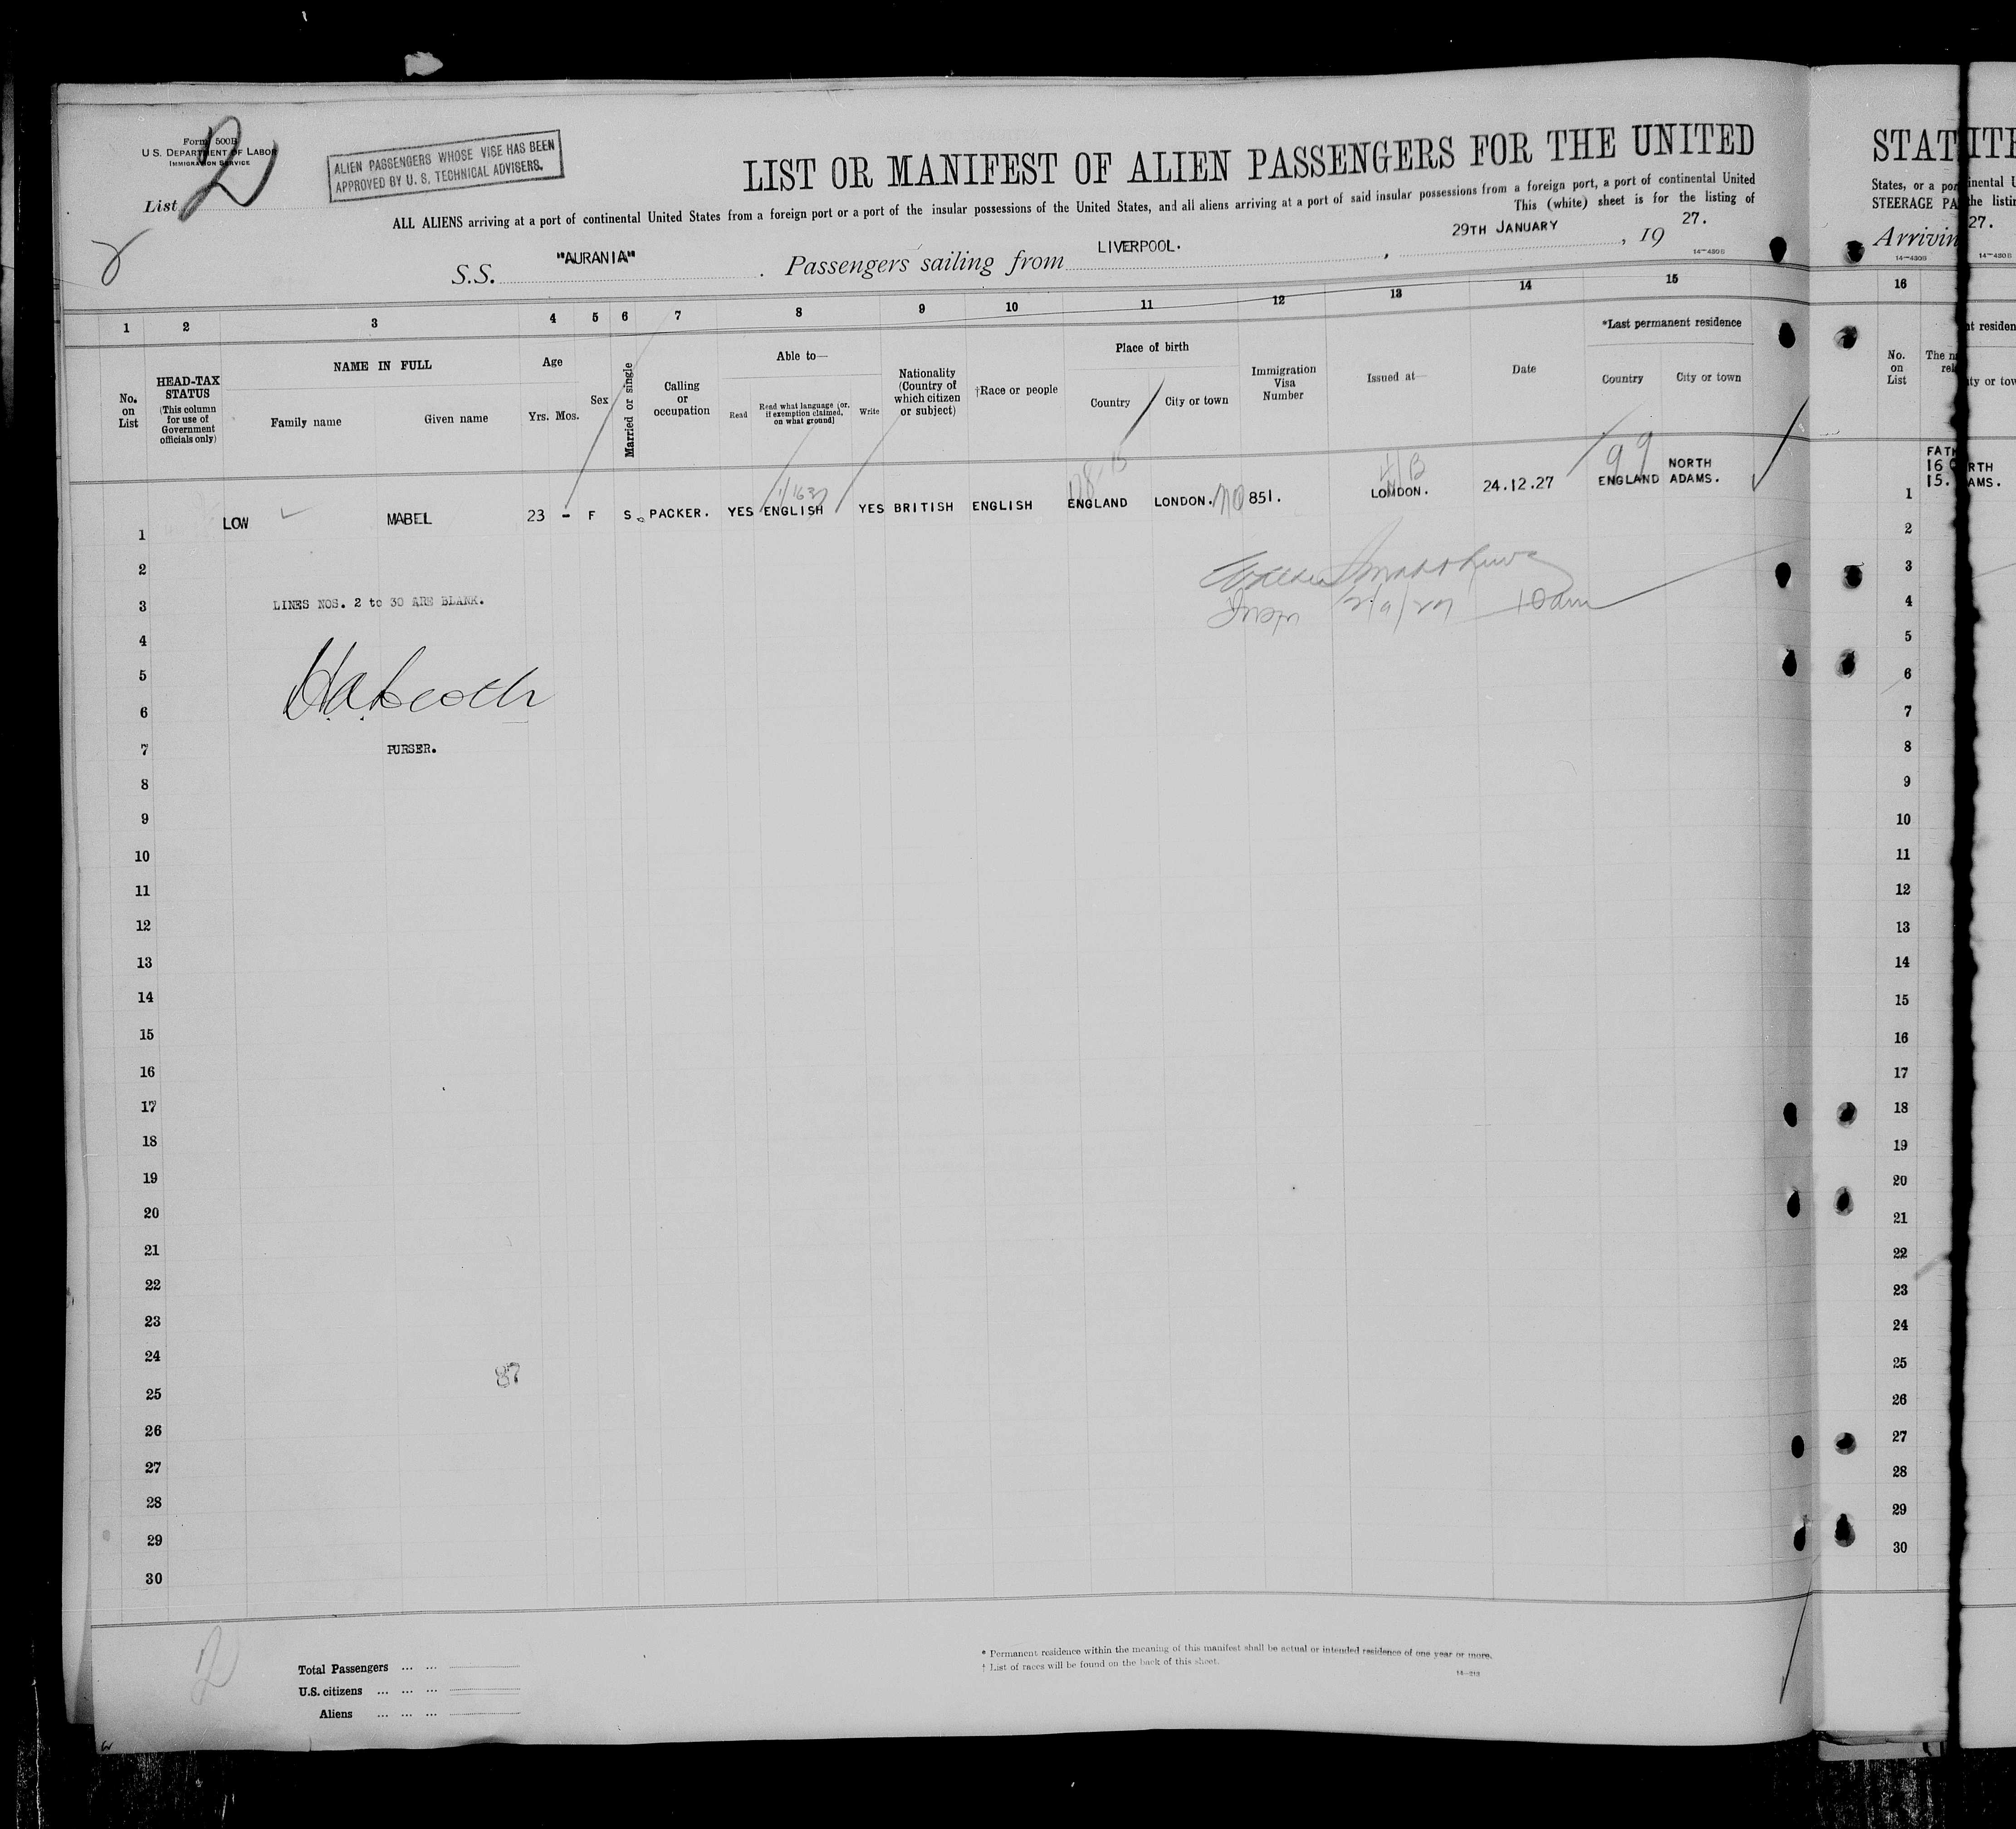 Form 500B
U.S. DEPARTMENT OF LABOR
IMMIGRATION SERVICE
List 2
ALIEN PASSENGERS WHOSE VISE HAS BEEN
APPROVED BY U. S. TECHNICAL ADVISERS.
LIST OR MANIFEST OF ALIEN PASSENGERS FOR THE UNITED
ALL ALIENS arriving at a port of continental United States from a foreign port or a port of the insular possessions of the United States, and all aliens arriving at a port of said insular possessions from a foreign port, a port of continental United
This (white) sheet is for the listing of
S.S. "AURANIA". Passengers sailing from LIVERPOOL. , 29TH JANUARY , 19 27.
14—430B
1 2 3 4 5 6 7 8 9 10 11 12 13 14 15
No. on List
HEAD-TAX STATUS
(This column for use of Government officials only)
NAME IN FULL
Family name
Given name
Age
Yrs. Mos.
Sex
Married or single
Calling or occupation
Able to—
Read
Read what language [or, if exemption claimed, on what ground]
Write
Nationality (Country of which citizen or subject)
†Race or people
Place of birth
Country
City or town
Immigration Visa Number
Issued at—
Date
*Last permanent residence
Country
City or town
99
1 LOW MABEL 23 - F S. PACKER. YES ENGLISH YES BRITISH ENGLISH ENGLAND LONDON. 851. LONDON. 24.12.27 ENGLAND NORTH ADAMS.
2
3 LINES NOS. 2 to 30 ARE BLANK.
10am
4
5
6
7 PURSER.
8
9
10
11
12
13
14
15
16
17
18
19
20
21
22
23
24
87
25
26
27
28
29
30
2
Total Passengers ... ...
U.S. citizens ... ... ...
Aliens ... ... ...
* Permanent residence within the meaning of this manifest shall be actual or intended residence of one year or more.
† List of races will be found on the back of this sheet.
STAT
States, or a por
STEERAGE PA
Arrivin
14—430B
16
No. on List
The n
rel
FATH
16
15.
1
2
3
4
5
6
7
8
9
10
11
12
13
14
15
16
17
18
19
20
21
22
23
24
25
26
27
28
29
30
ITE
inental U
the listin
27.
14—430B
t residen
ity or tow
RTH
AMS.